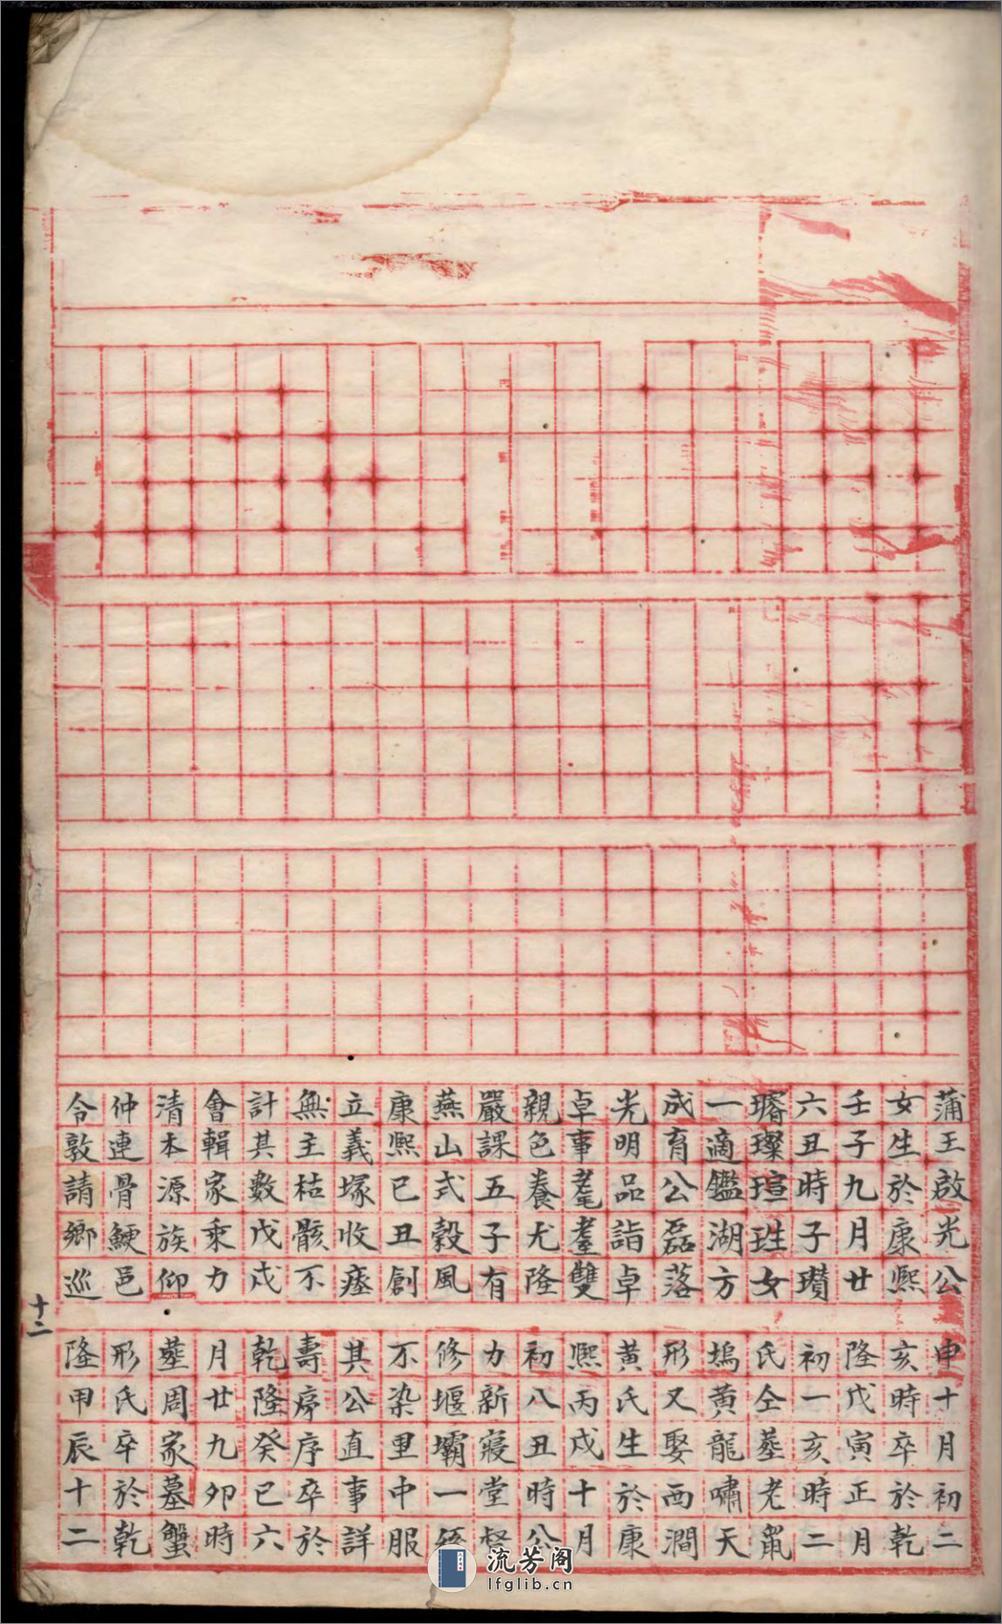 蒲王啟光公
女生於康熙
壬子九月廿
六丑時子瓚
璿璨瑄珄女
一適鑑湖方
成育公磊落
光明品詣卓
卓事耄耋雙
親色養尤隆
嚴課五子有
燕山式穀風
康熙己丑創
立義塚收瘞
無主枯骸不
計其數戊戌
會輯家乘力
清本源族仰
仲連骨鯁邑
令敦請鄉巡
申十月初二
亥時卒於乾
隆戊寅正月
初一亥時二
氏仝塟老鼠
塢黃龍嘯天
形又娶西澗
黃氏生於康
熙丙戌十月
初八丑時公
力新寢堂督
修堰壩一
不染里中服
其公直事詳
壽序卒於
乾隆癸巳六
月廿九卯時
塟周家墓蟹
形氏卒於乾
隆甲辰十二
十二
流芳阁
lfglib.cn